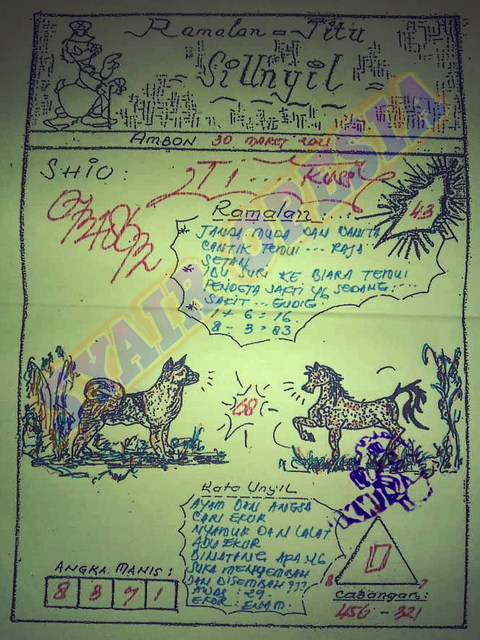 Ramalan - Titu
Si Unyil
AMBON 30 MARET 2021
SHIO:
Ramalan:
43
* JANDA MUDA DAN WANITA
CANTIK TEMUI ... RAJA
SETAN
* IBU SURI KE BIARA TEMUI
PENDETA SAKTI YG SEDANG ...
* SAKIT ... 
1 + 6 = 16
8 - 3 = 83
68
Kata Unyil
AYAM DAN ANGSA
CARI EKOR
NYAMUK DAN LALAT
ADU EKOR
BINATANG APA YG
SUKA MENYEMBAH
DAN DISEMBAH???
AWAS: 29
EKOR: ENAM.
ANGKA MANIS:
8 3 7 1
8 7
Cabangan:
456 - 321